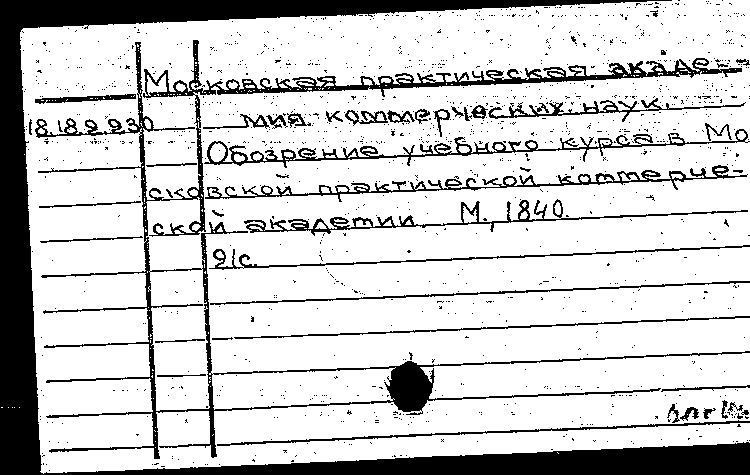 Московская практическая акаде-
18.18.9.230 мия коммерческих наук.
Обозрение учебного курса в Мо
сковской практической коммерче-
ской академии. М., 1840.
91с.